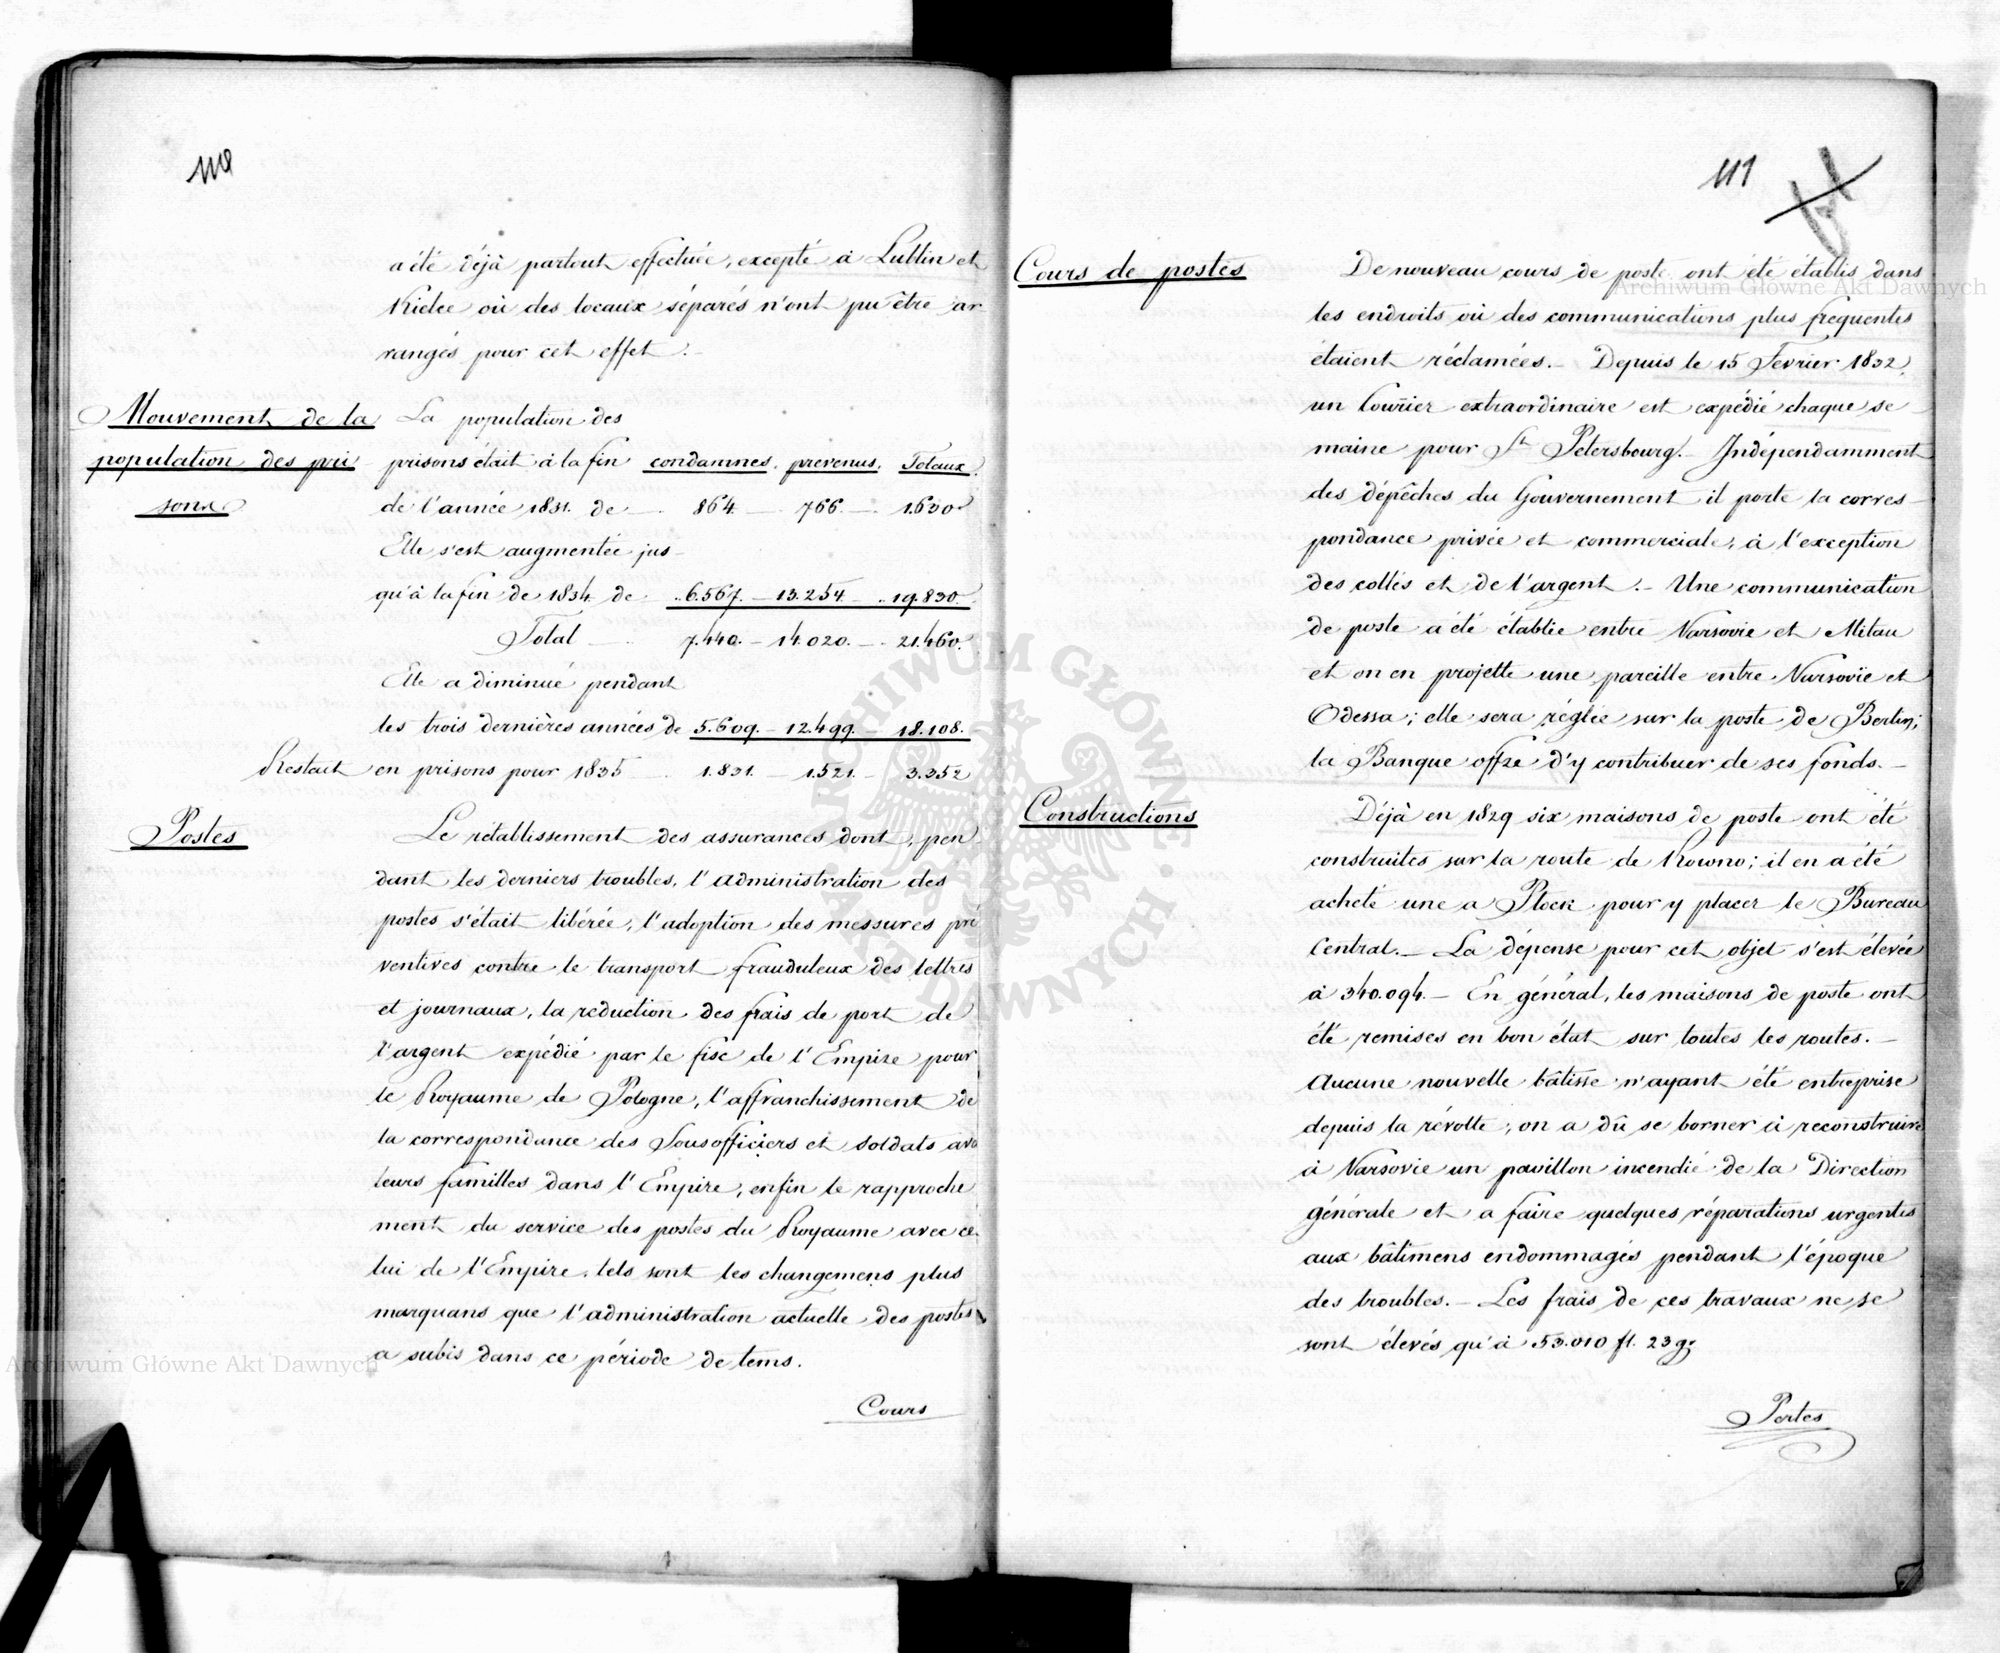 110
a été déjà partout effectuée, excepté à Lublin et
Kielce où des locaux séparés n'ont pu être ar
rangés pour cet effet.-
Mouvement de la
population des pri
sons
La population des
prisons était à la fin condamnés. prevenus. Totaux.
de l'année 1831. de — 864. — 766. — 1.630
Elle s'est augmentée jus-
qu'à la fin de 1834. de 6.567. — 13.254. — 19.830.
Total — 7.440. — 14.020. — 21.460.
Elle a diminué pendant
les trois dernières années de 5.609. — 12.499. — 18.108.
Restait en prisons pour 1835 1.831. — 1.521. — 3.352
Postes
Le rétablissement des assurances dont, pen
dant les derniers troubles, l'administration des
postes s'était libérée, l'adoption des messures pré
ventives contre le transport frauduleux des lettres
et journaux, la réduction des frais de port de
l'argent expédié par le fisc de l'Empire pour
le Royaume de Pologne, l'affranchissement de
la correspondance des Sousofficiers et soldats avec
leurs familles dans l'Empire, enfin le rapproche
ment du service des postes du Royaume avec ce-
lui de l'Empire, tels sont les changemens plus
marquans que l'administration actuelle des postes
a subis dans ce période de tems.
Cours
111
Cours de postes
De nouveau cours de poste ont été établis dans
les endroits où des communications plus frequentes
étaient réclamées.- Depuis le 15 Fevrier 1832.
un Courrier extraordinaire est expédié chaque se-
maine pour St Petersbourg.- Indépendamment
des dépêches du Gouvernement il porte la corres-
pondance privée et commerciale, à l'exception
des collés et de l'argent.- Une communication
de poste a été établie entre Varsovie et Mitau
et on en projette une pareille entre Varsovie et
Odessa; elle sera réglée sur la poste de Berlin;
la Banque offre d'y contribuer de ses fonds.-
Constructions
Déjà en 1829 six maisons de poste ont été
construites sur la route de Kowno; il en a été
acheté une a Plock pour y placer le Bureau
Central.- La dépense pour cet objet s'est élevée
à 340.094.- En général, les maisons de poste ont
été remises en bon état sur toutes les routes.-
Aucune nouvelle bâtisse n'ayant été entreprise
depuis la révolte, on a dû se borner à reconstruire
à Varsovie un pavillon incendié de la Direction
générale et a faire quelques réparations urgentes
aux bâtimens endommagés pendant l'époque
des troubles.- Les frais de ces travaux ne se
sont élevés qu'à 53.010 fl. 23 gr
Postes
Archiwum Główne Akt Dawnych
Archiwum Główne Akt Dawnych
ARCHIWUM GŁÓWNE AKT DAWNYCH